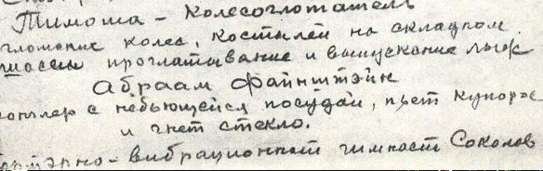 Тимоша – Колесоглотатель
колес, костылей на складном
проглатывание и выпускание
Абраам Файнштэйн
с небьющейся посудой, пьет купорос
и гнет стекло.
вибрационный гимнаст Соколов